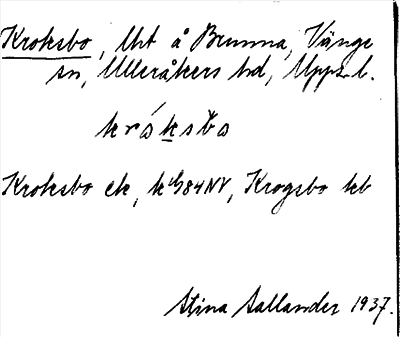 Kroksbo, lht å Brunna, Vänge
sn, Ulleråkers hd, Upps. l.
krókšbo
Kroksbo ek, 84 NV, Krogsbo kb
Stina Sallander 1937.